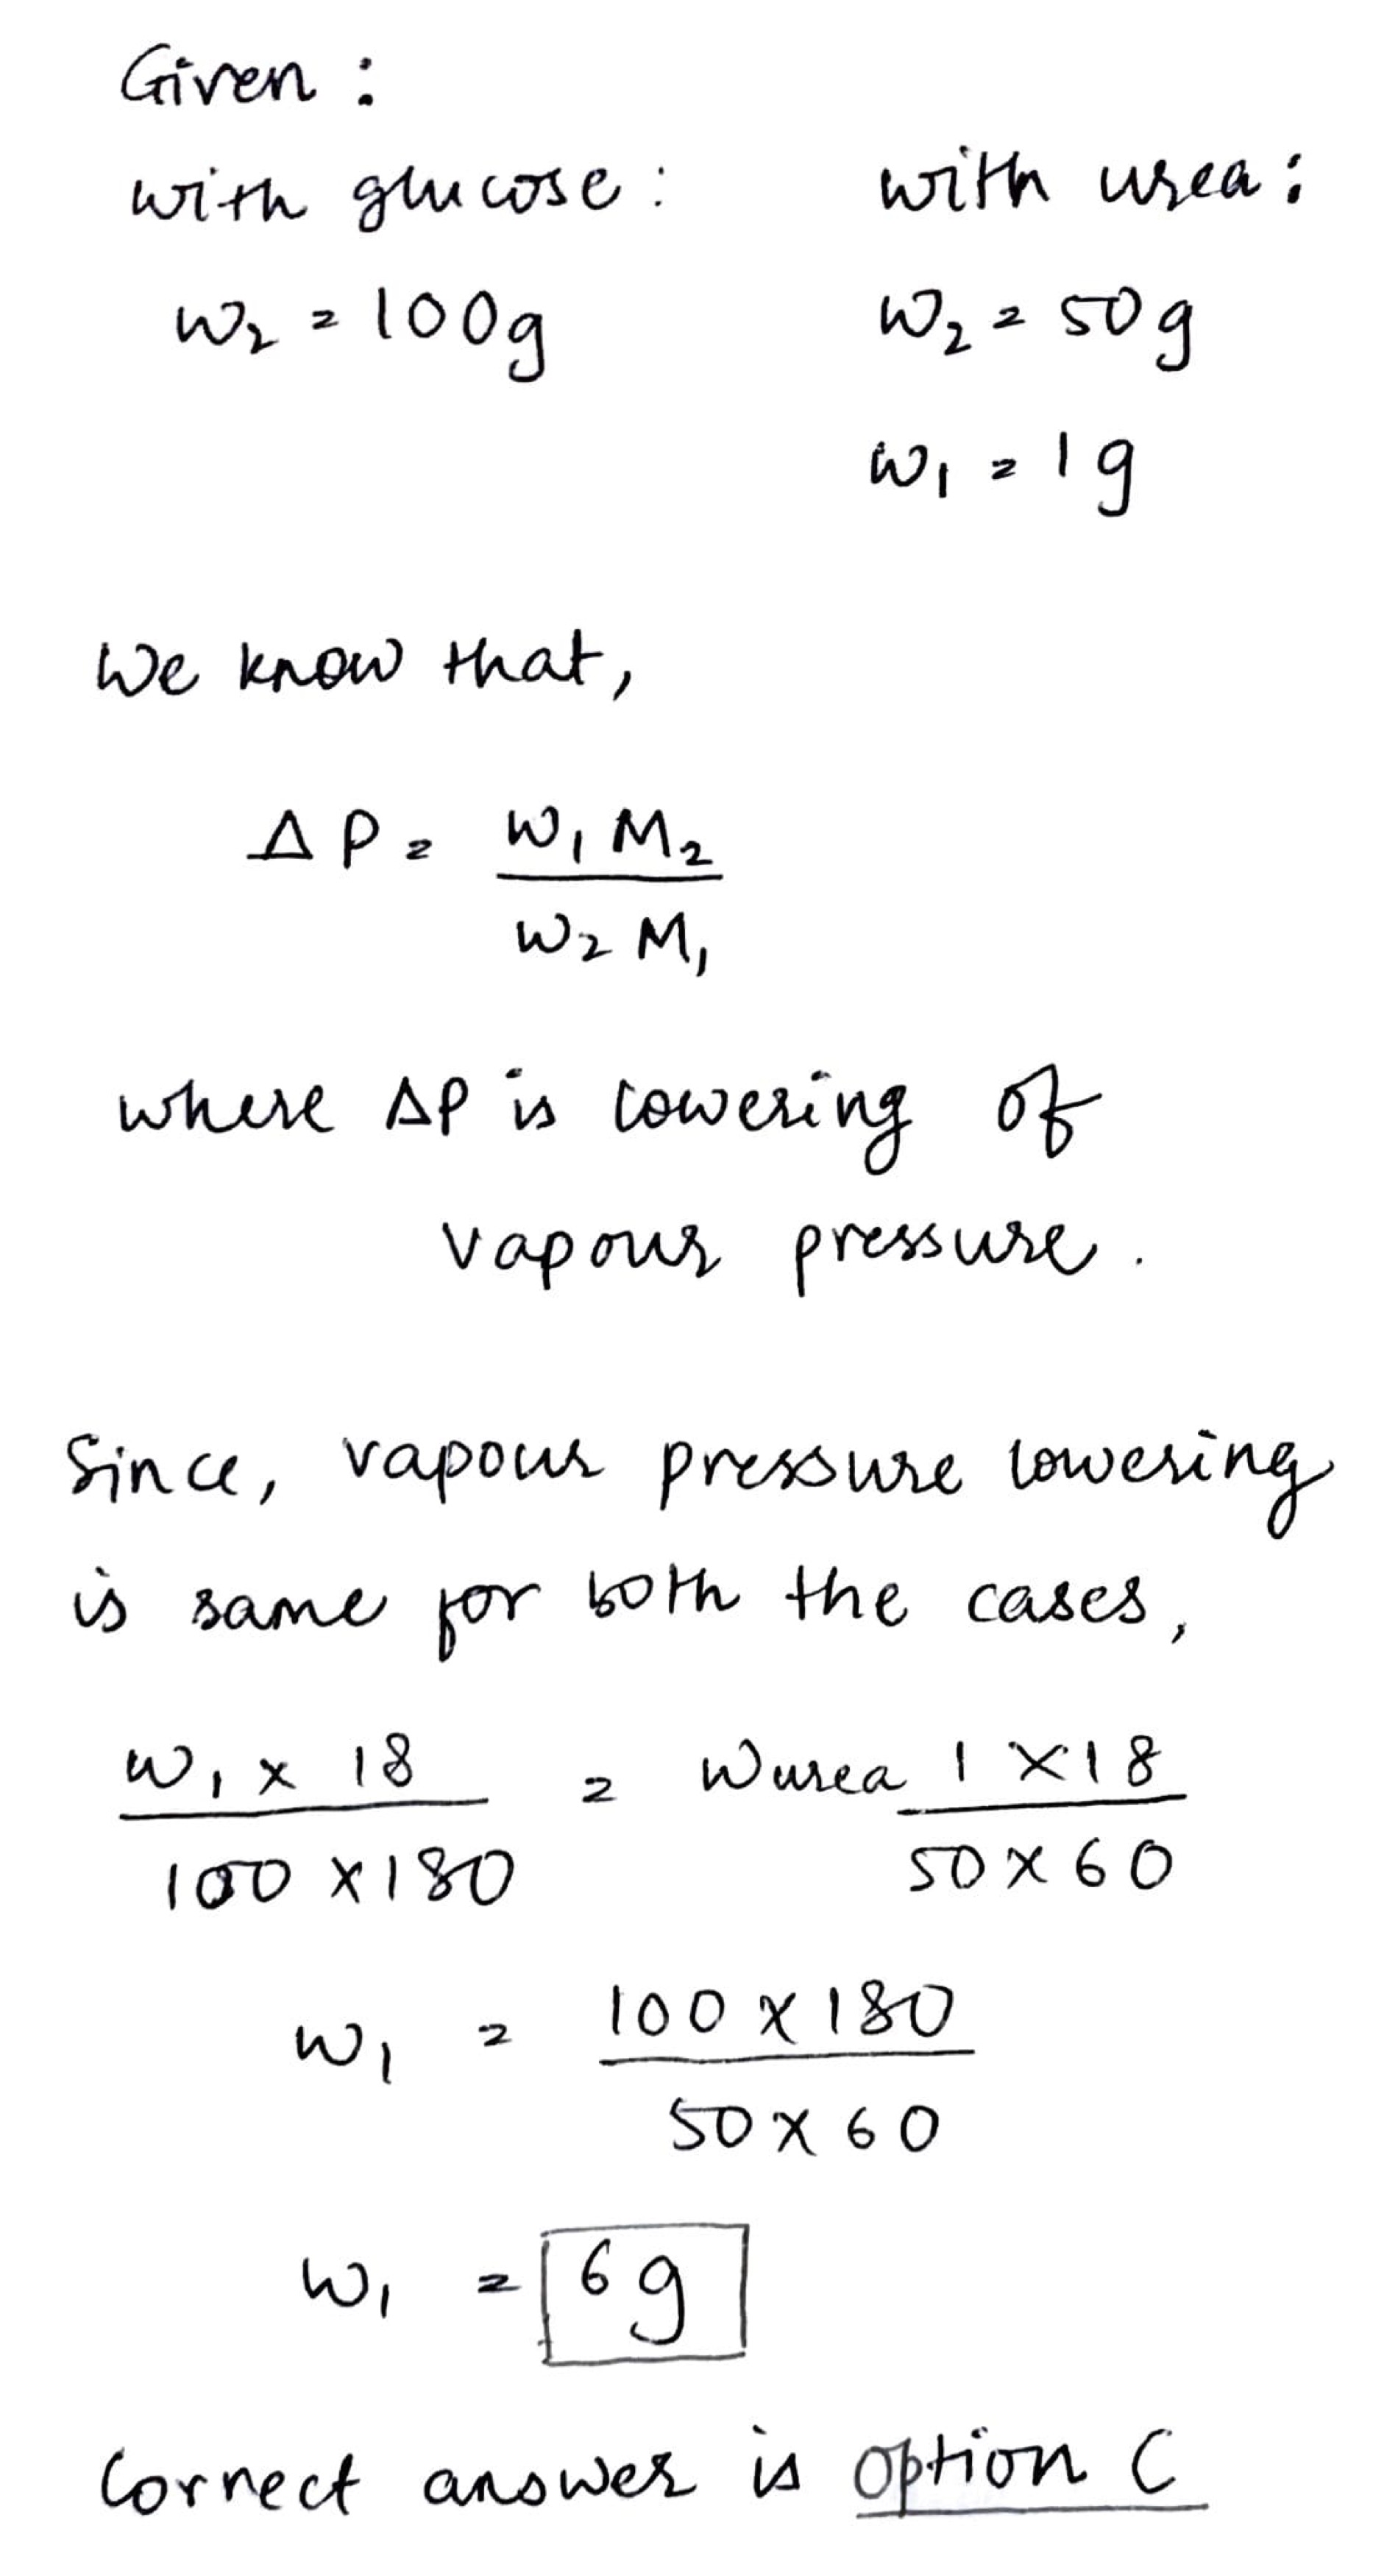 Given :
with glucose :
with urea :
W₂ = 100g
W₂ = 50g
W₁ = 1g
We know that,
ΔP = W₁ M₂
W₂ M₁
where ΔP is lowering of
vapour pressure.
Since, vapour pressure lowering
is same for both the cases,
W₁ × 18 = Wurea 1 × 18
100 × 180 50 × 60
W₁ = 100 × 180
50 × 60
W₁ = 6g
Correct answer is option C